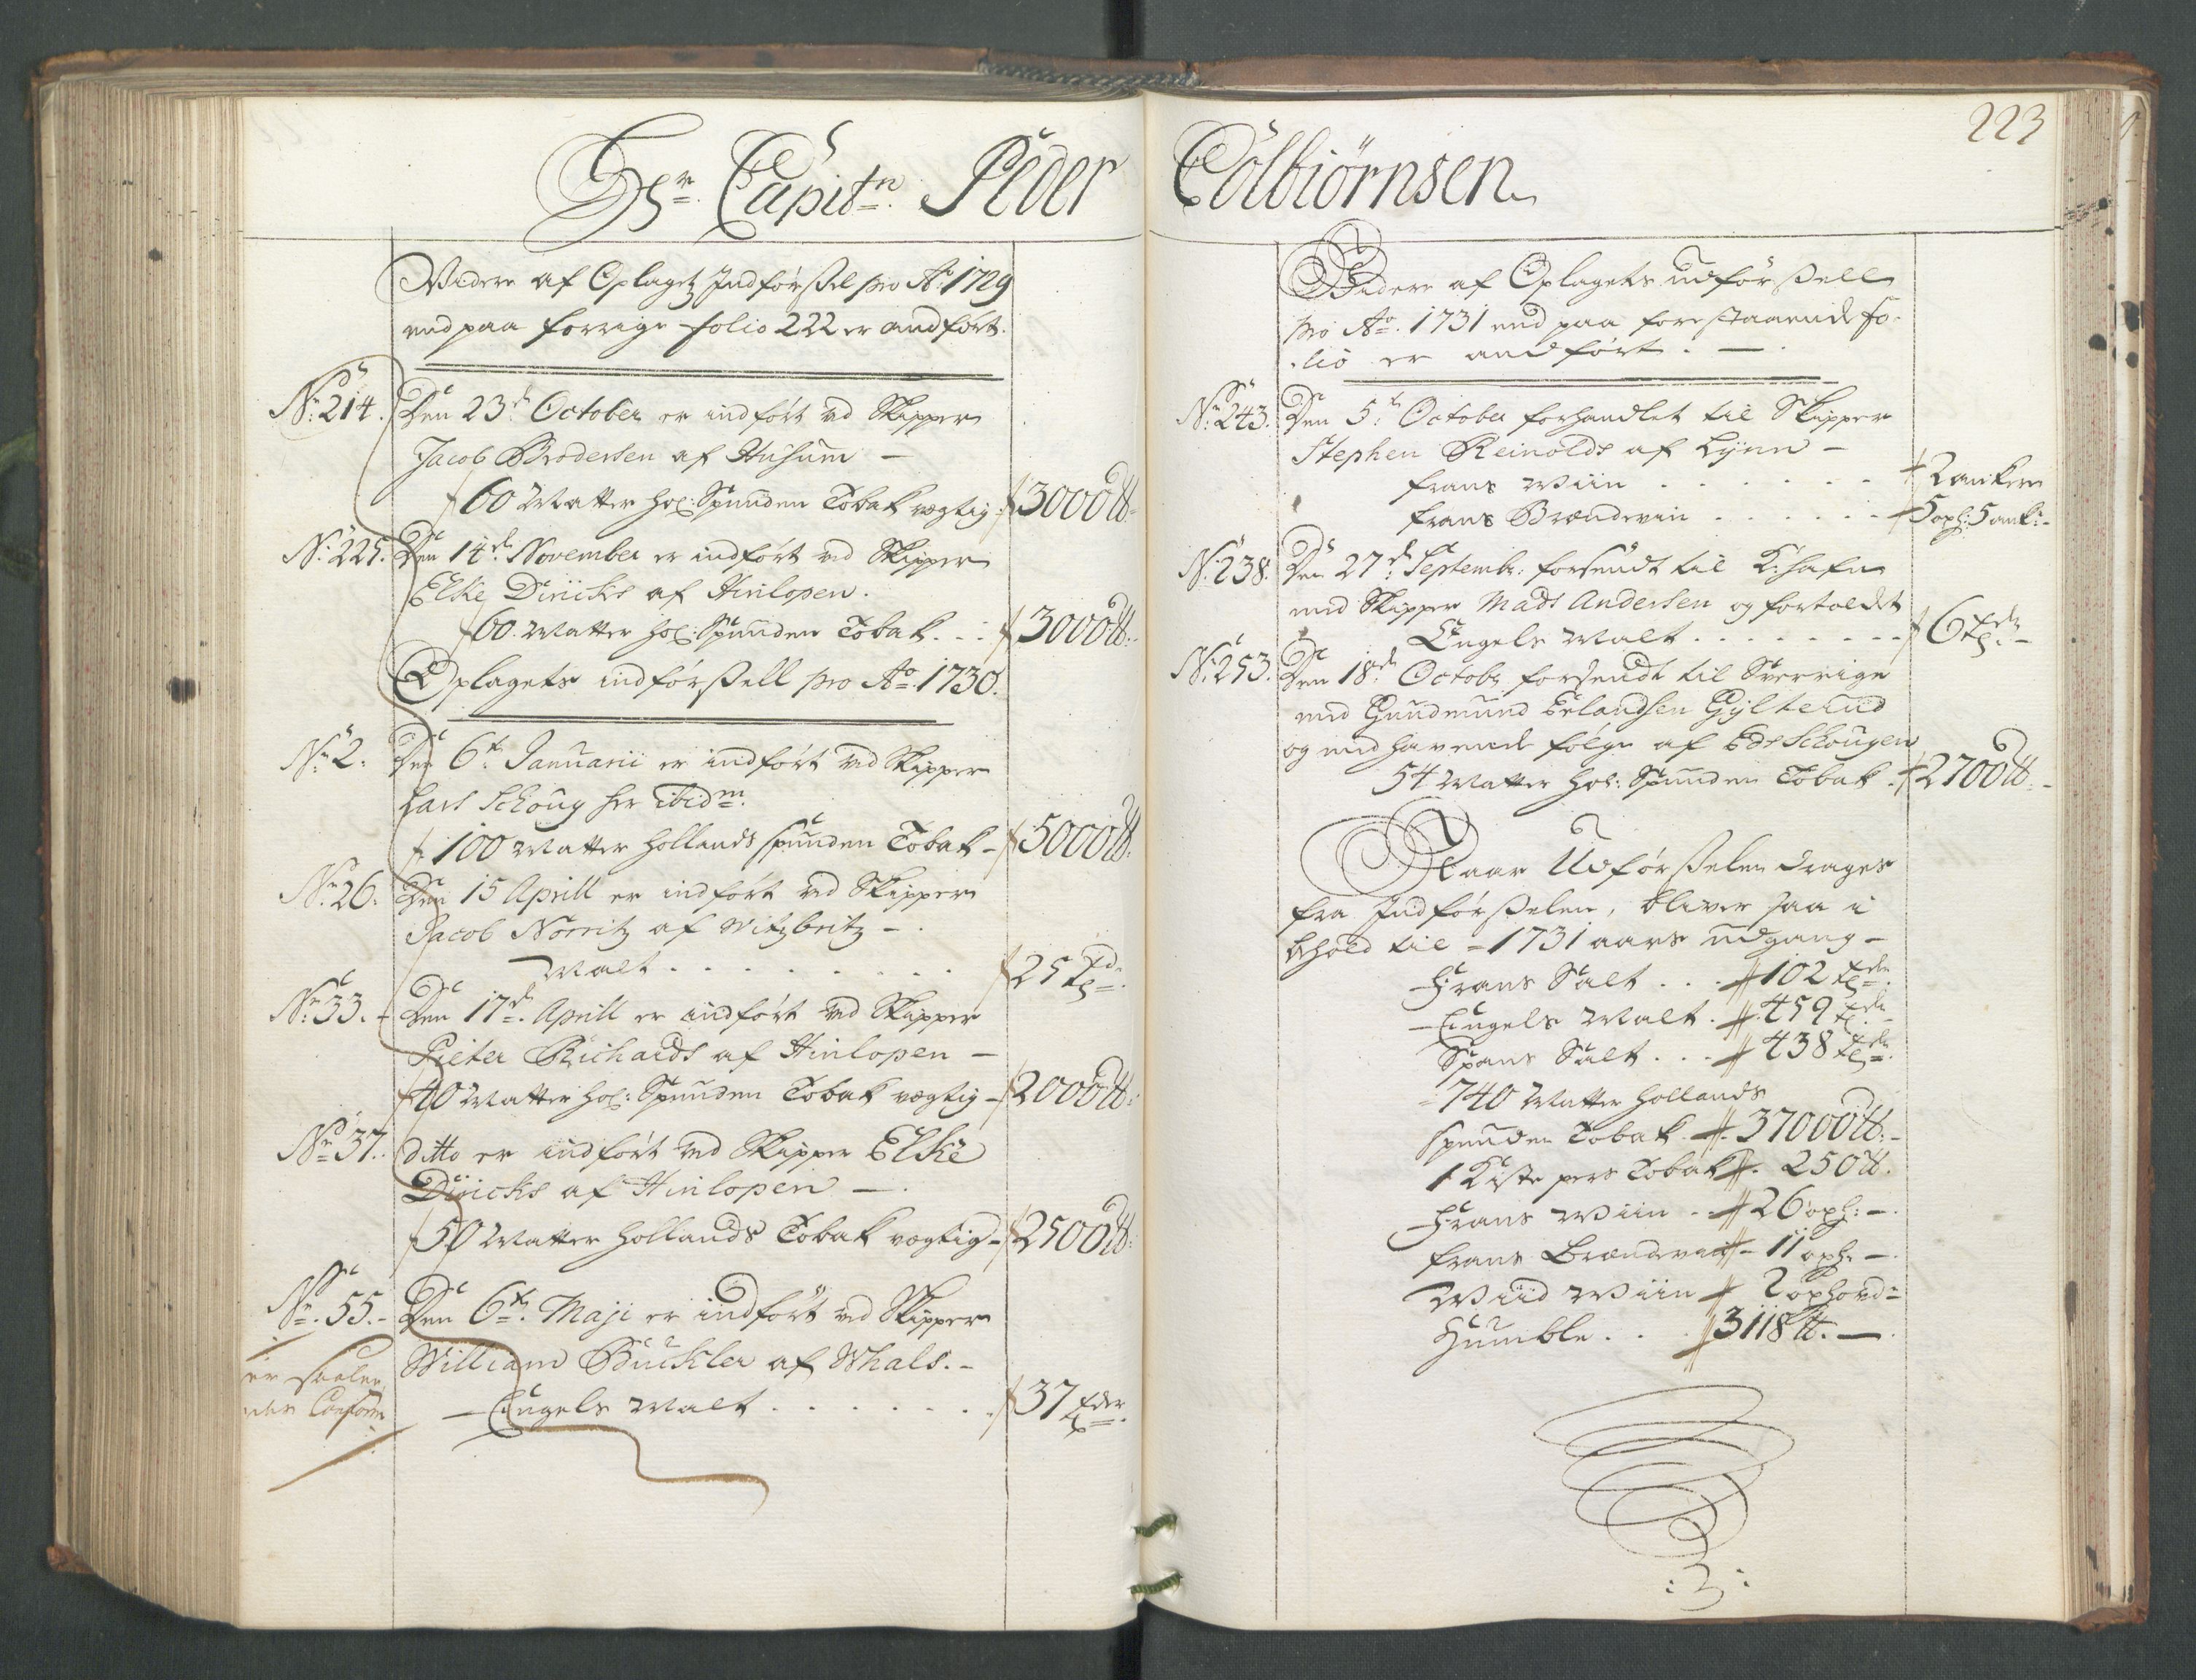 Hr. Capitn. Peder
Videre af Oplagetz Indførßel pro Ao 1729
end paa forrige folio 222 er andført.
No. 214. Den 23de October er indført ved Skipper
Jacob Brodersen af Husum –
60 Matter hol: Spunden Tobak vegtig 3000 ℔
No. 225. Den 14de November er indført ved Skipper
Elke Diricks af Hinlopen.
60 Matter hol: Spunden Tobak. .. 3000 ℔
Oplagets indførßell pro Ao. 1730.
No. 2. Den 6te Januarii er indført ved Skipper
Lars Schoug her ibidm.
100 Matter hollands spunden Tobak – 5000 ℔
No. 26. Den 15 Aprill er indført ved Skipper
Jacob Norritz af Witzbritz –
Malt . . . . . . . . 25 tdr
No. 33. Den 17de. Aprill er indført ved Skipper
Pieter Richards af Hinlopen –
40 Matter hol: Spunden Tobak vegtig – 2000 ℔
No. 37. ditto er indført ved Skipper Elke
Diricks af Hinlopen –.
50 Matter hollands Tobak vegtig – 2500 ℔
No. 55. – Den 6te. Maji er indført ved Skipper
William Buckler af Whals. –
Engels Malt . . . . . . . 37 tdr
Colbiørnsen
223
Videre af Oplagets udførßell
pro Ao. 1731 end paa forestaaende fo-
lio er andført. –.
No. 243. Den 5te October forhandlet til Skipper
Stephen Reinolds af Lynn –
frans Wiin . . . . . . 2 ankere
frans Brændevin . . . . . 5 oxh: 5 ank: –
No. 238. Den 27de Septembr: forsendt til K:hafn
med Skipper Mads Andersen og fortoldet
Engels Malt . . . . . . . . 6 tdr –
No. 253. Den 18de Octobr forsendt til Sverrige
med Gundmund Erlandsen Gyltehud
og medhavende følge af Eds Schougen
54 Matter hol: Spunden Tobak. 2700 ℔ –
Naar Udførßelen drages
fra Indførßelen, bliver saa i
behold til 1731 aars udgang –
Frans Salt . . . 102 tdr
Engels Malt . 459 tdr
Spans Salt . . . 438 tdr
740 Matter hollands
spunden Tobak 37000 ℔: –
1 Kiste pers Tobak 250 ℔.
Frans Wiin . . 26 oxh: –.
frans Brændevin – 11 oxh. –.
Wiid Wiin 2 oxhovd:
Humble . . . 3118 ℔. –.